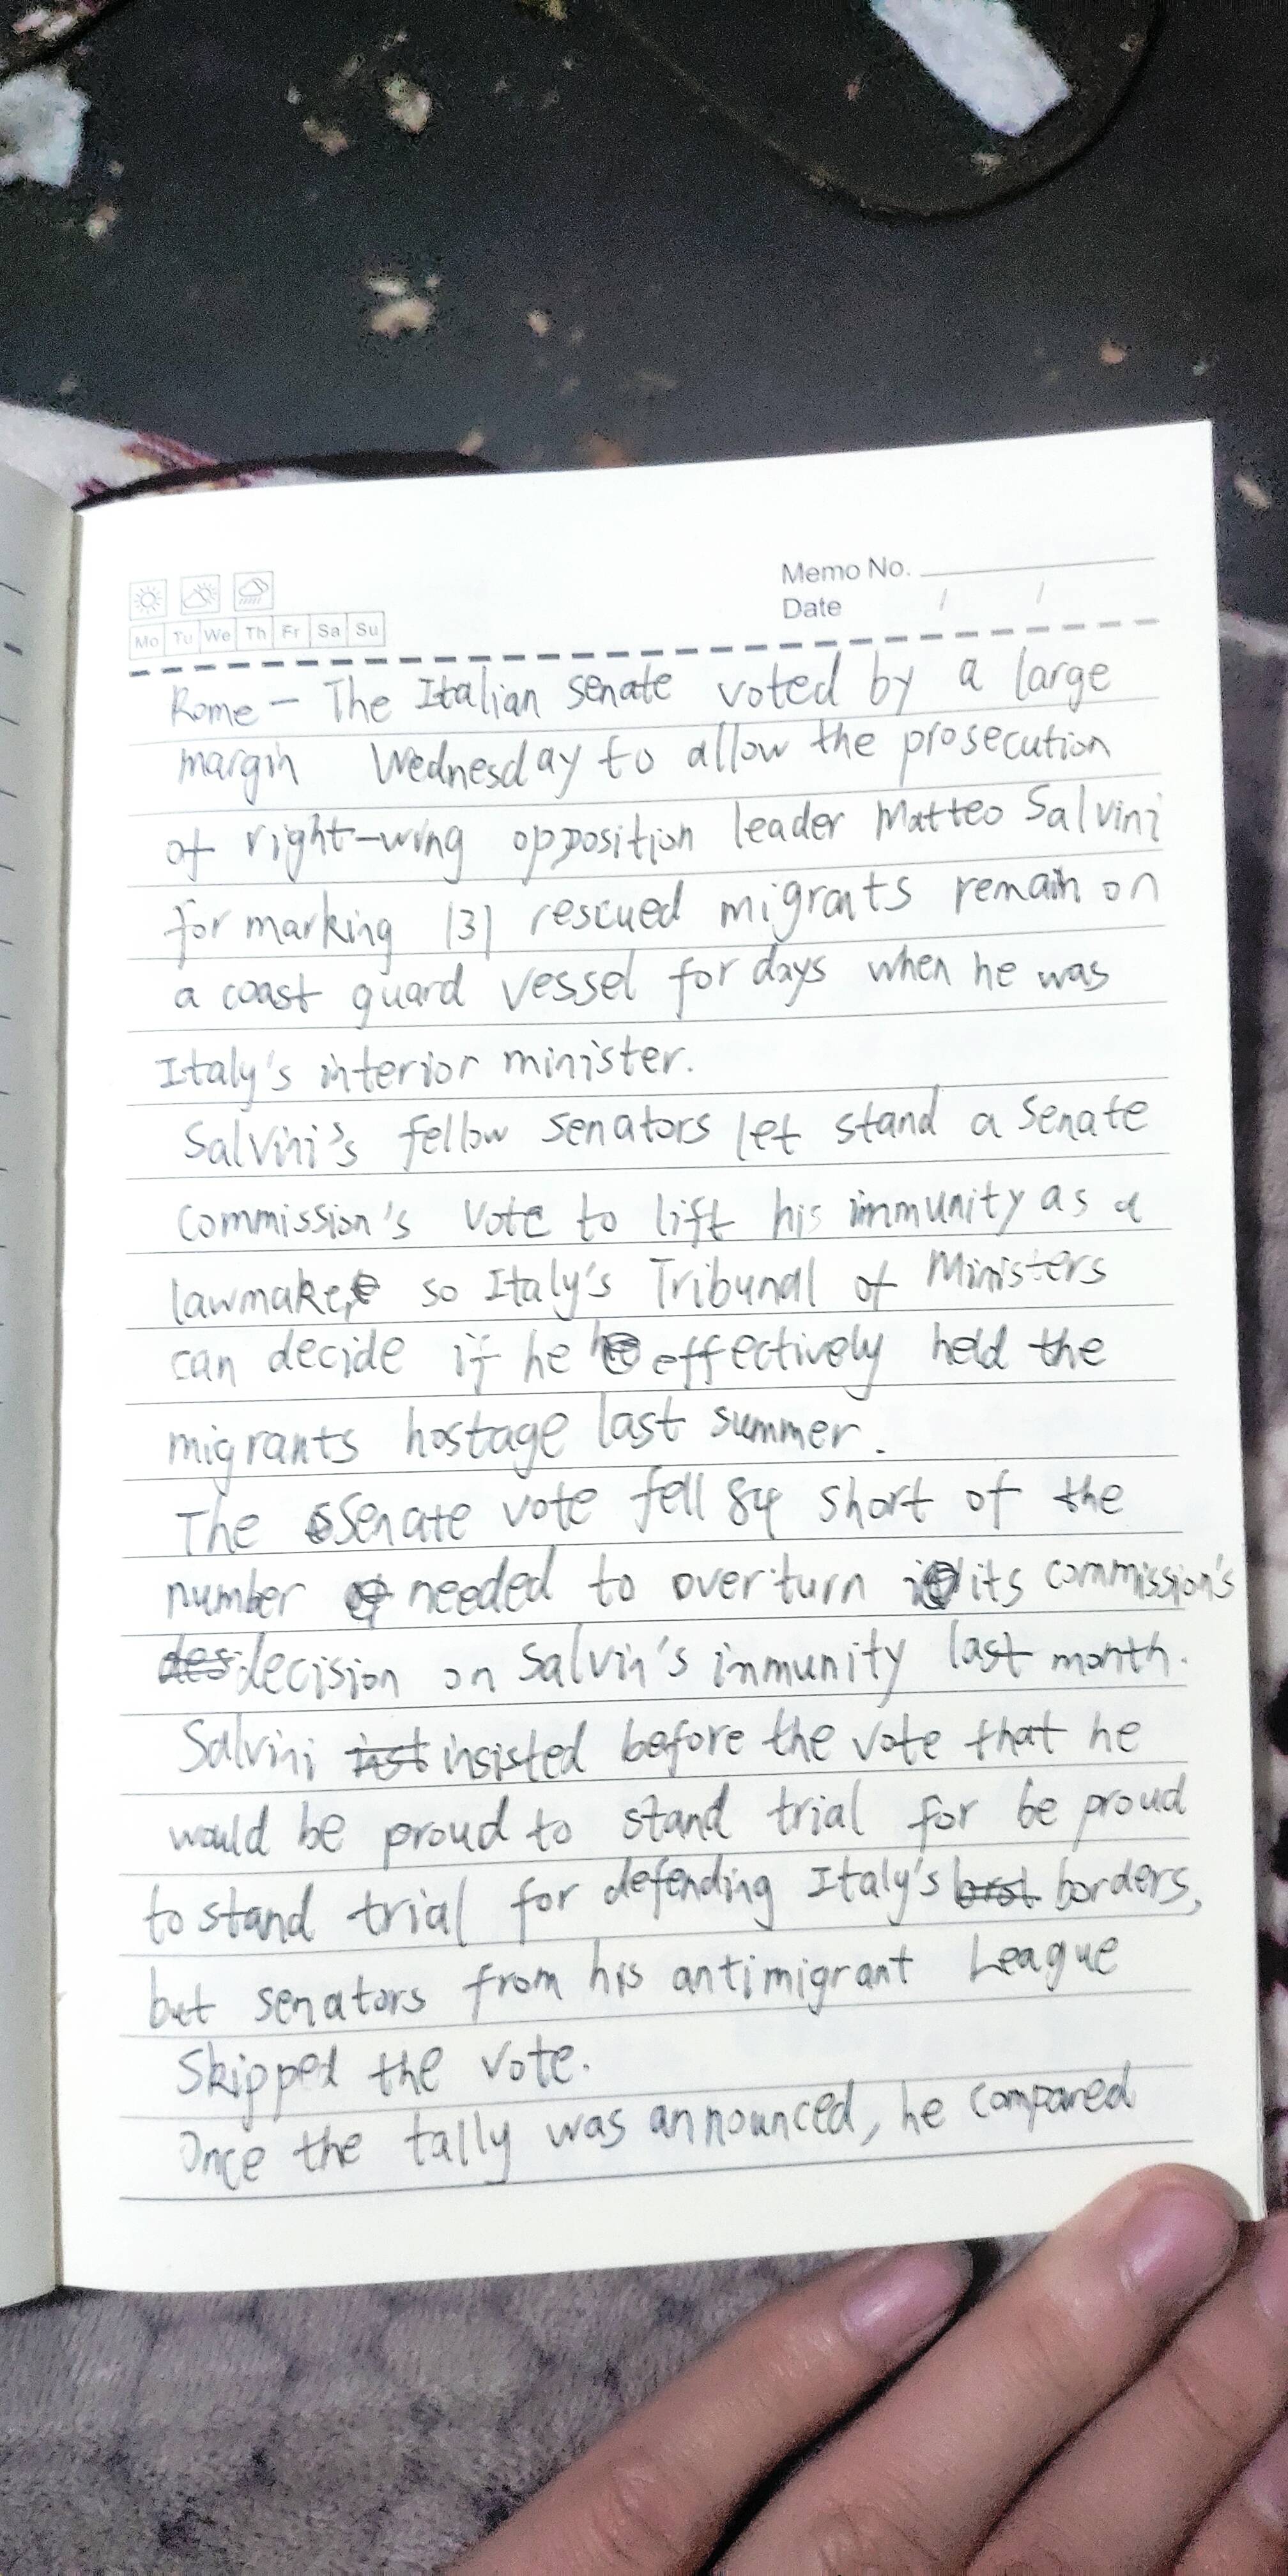 Memo No.
Date / /
Mo Tu We Th Fr Sa Su
Rome - The Italian senate voted by a large
margin Wednesday to allow the prosecution
of right-wing opposition leader Matteo Salvini
for marking 131 rescued migrants remain on
a coast guard vessel for days when he was
Italy's interior minister.
Salvini's fellow senators let stand a Senate
commission's vote to lift his immunity as a
lawmaker so Italy's Tribunal of Ministers
can decide if he effectively held the
migrants hostage last summer.
The Senate vote fell 84 short of the
number needed to overturn its commission's
des decision on Salvin's immunity last month.
Salvini ist insisted before the vote that he
would be proud to stand trial for be proud
to stand trial for defending Italy's borders,
but senators from his antimigrant League
Skipped the vote.
Once the tally was announced, he compared